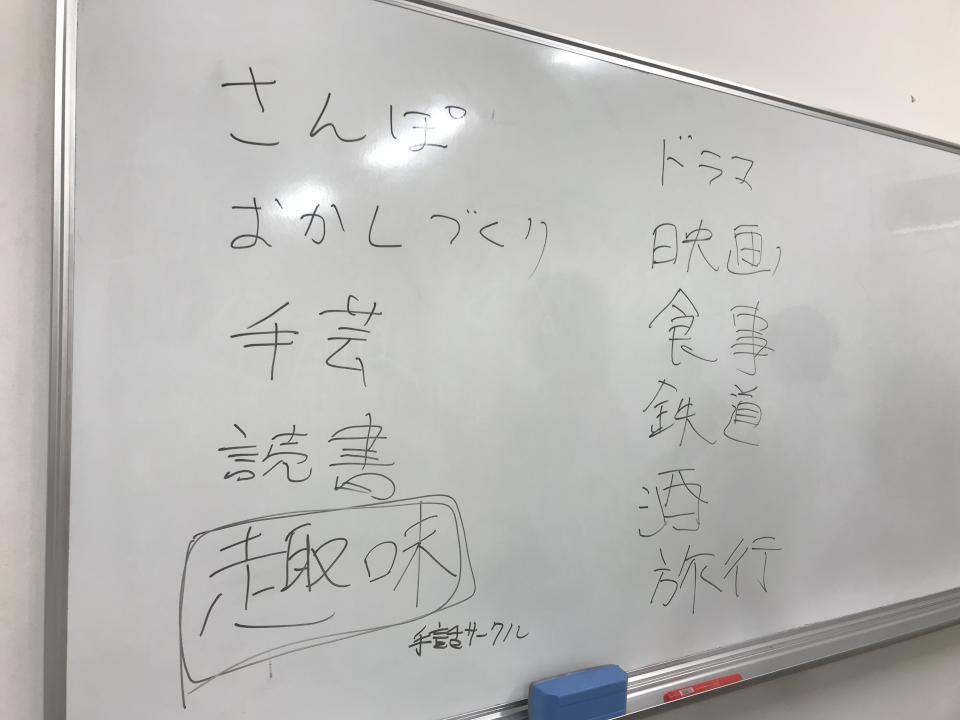 さんぽ
おかしづくり
手芸
読書
趣味
手話サークル
ドラマ
映画
食事
鉄道
酒
旅行